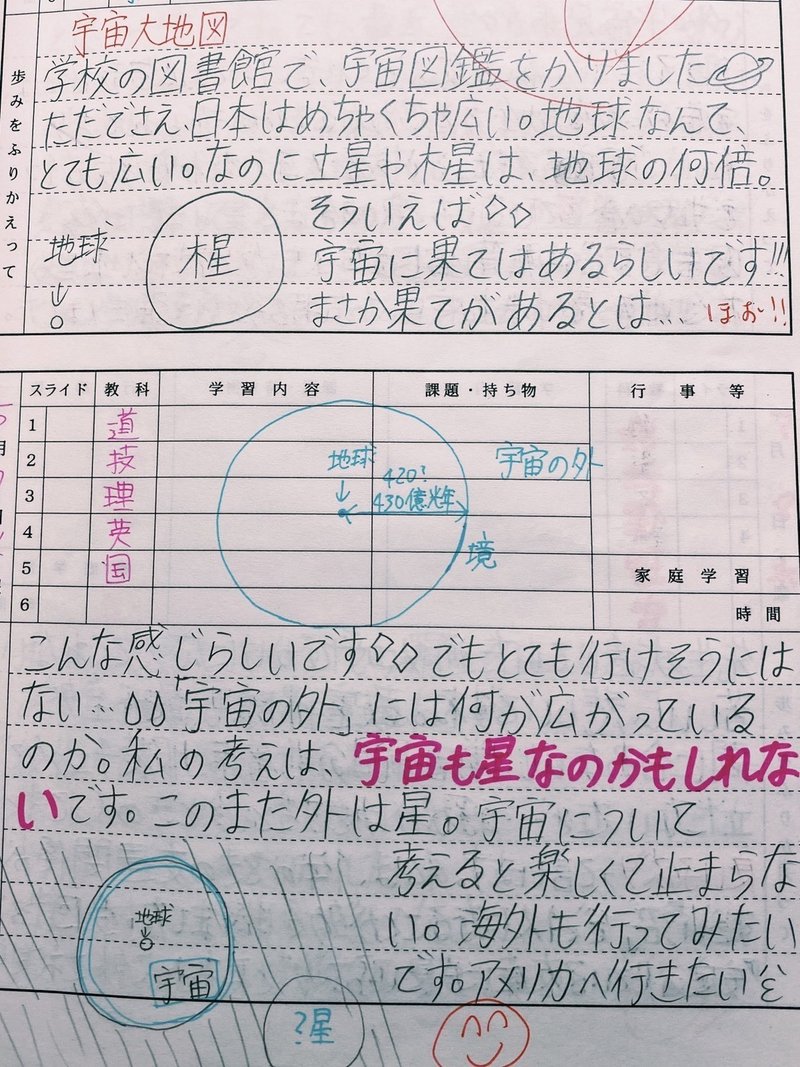 宇宙大地図
歩みをふりかえって
学校の図書館で、宇宙図鑑をかりました
ただでさえ、日本はめちゃくちゃ広い。地球なんて、
とても広い。なのに土星や木星は、地球の何倍。
そういえば
地球
木星
宇宙に果てはあるらしいです!!!
まさか果てがあるとは… ほお!!
スライド 教科 学習内容 課題・持ち物 行事等
1 道
2 技
3 理
4 英
5 国
6
地球
420?
430億光年
宇宙の外
境
家庭学習
時間
こんな感じらしいです でもとても行けそうには
ない…「宇宙の外」には何が広がっている
のか。私の考えは、宇宙も星なのかもしれな
いです。このまた外は星。宇宙について
考えると楽しくて止まらな
い。海外も行ってみたい
です。アメリカへ行きたい
地球
宇宙
?星